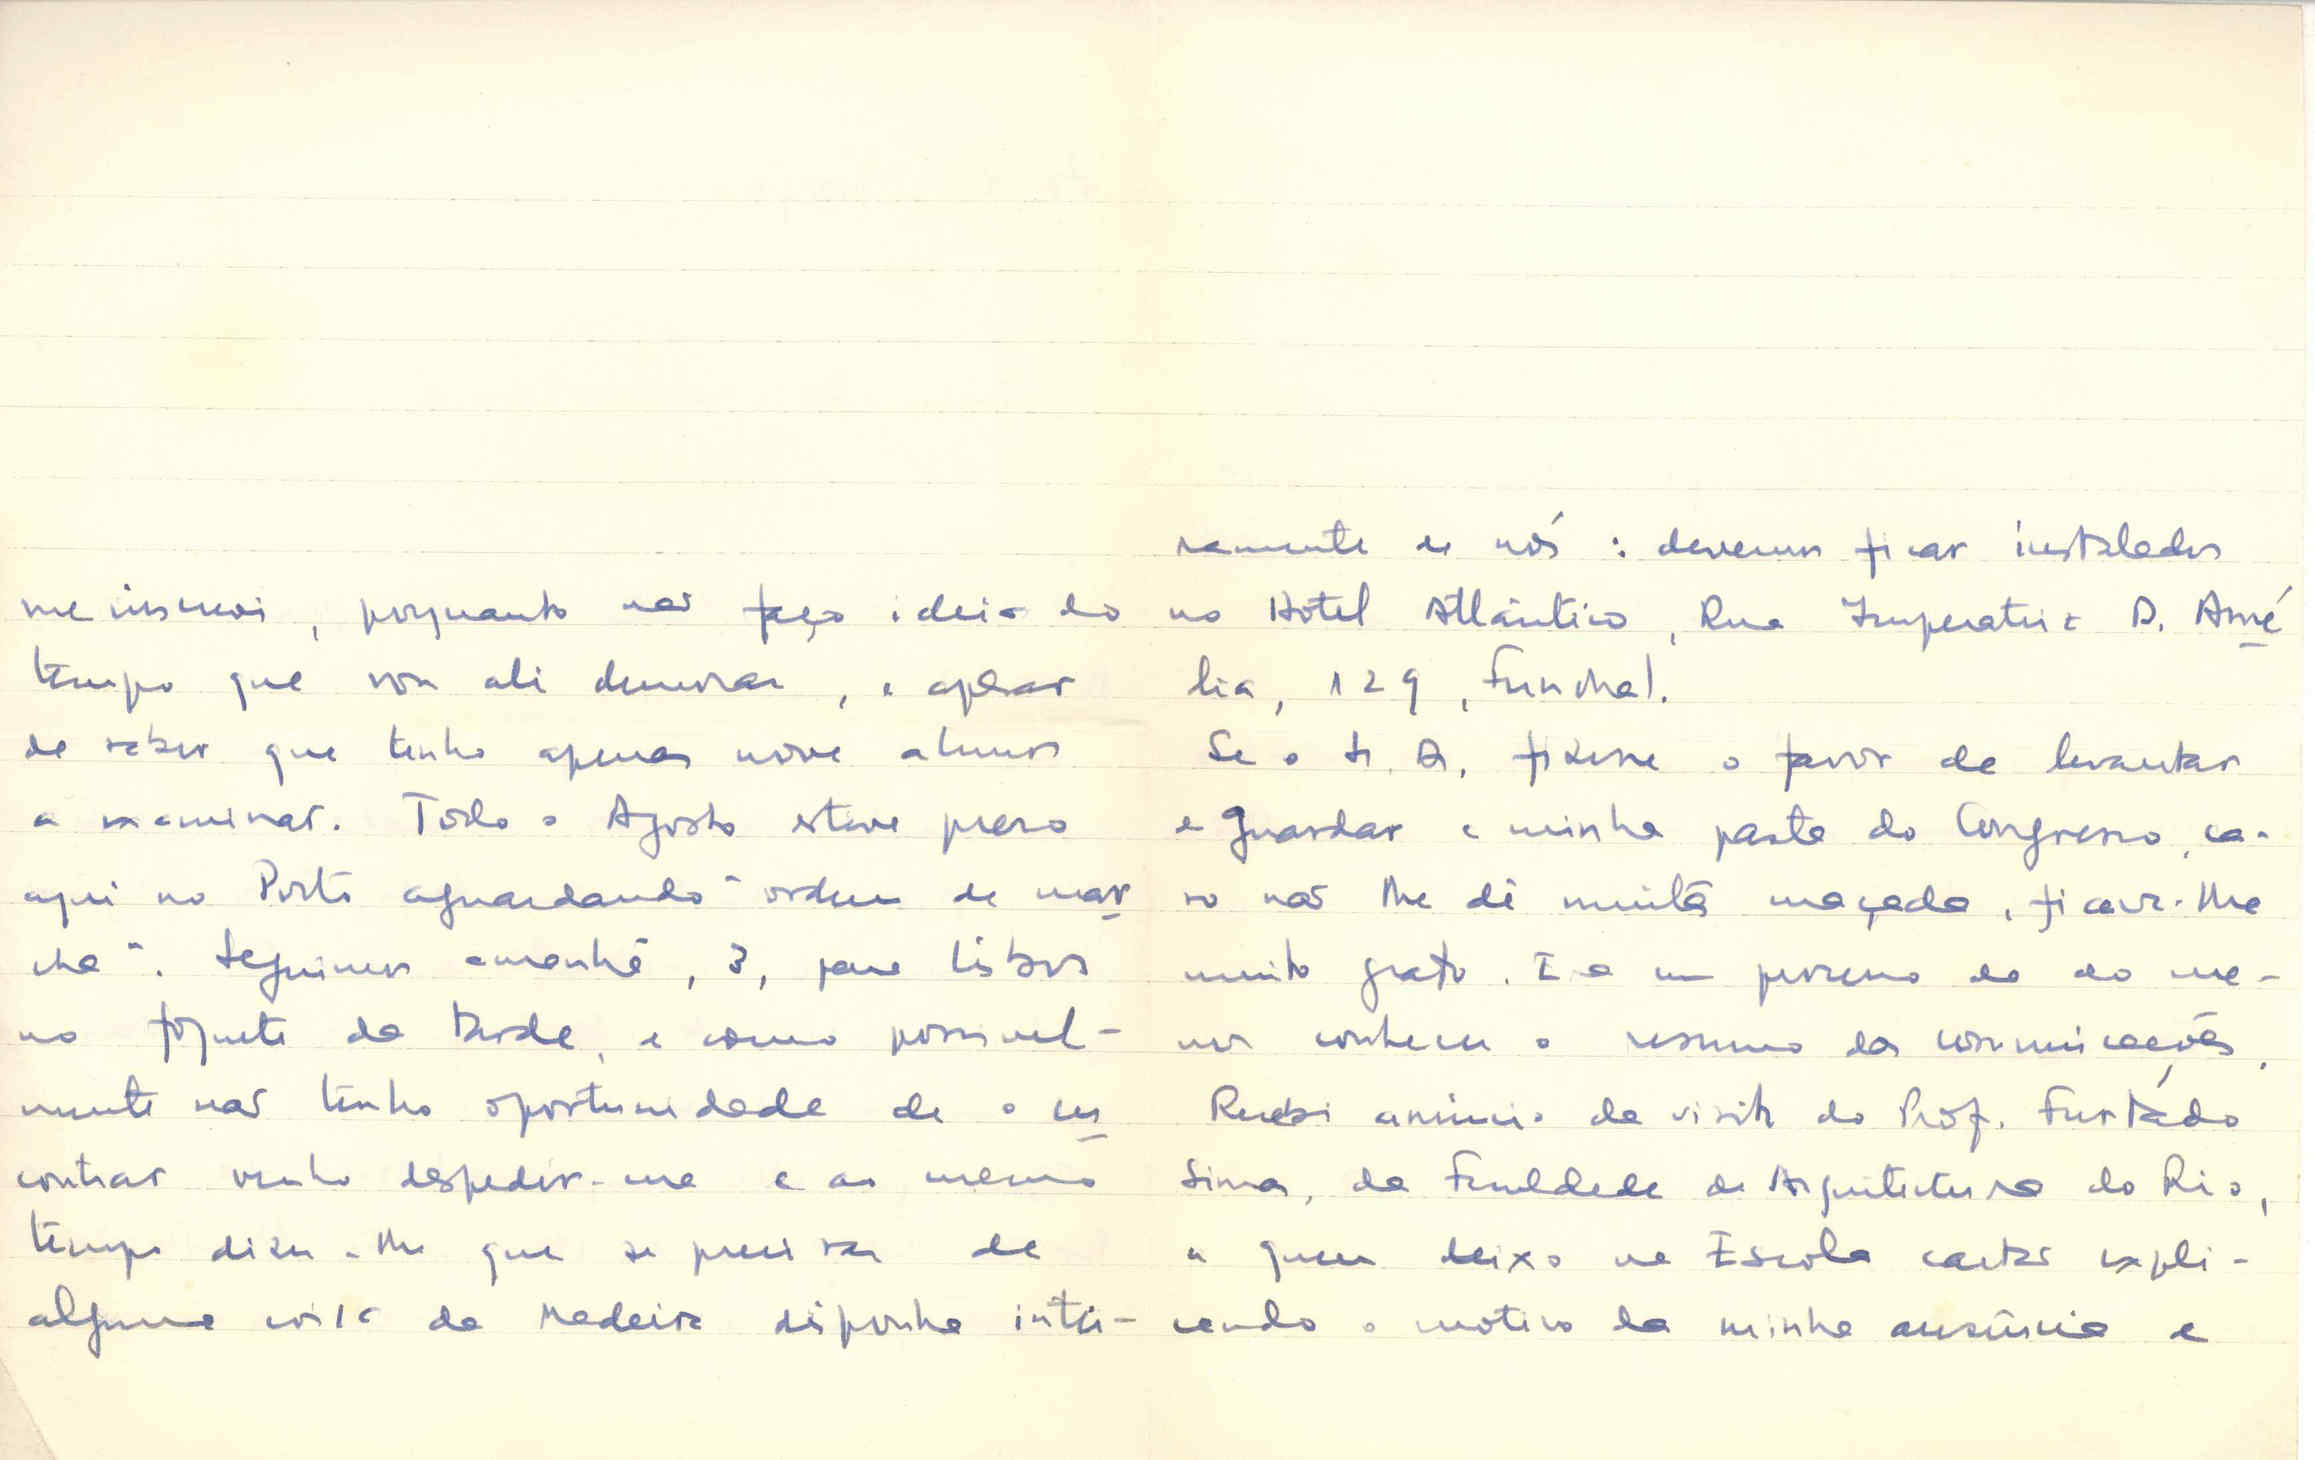 me inscrevi, porquanto não faço ideia do
tempo que vou ali demorar, e apesar
de saber que tenho apenas nove alunos
a examinar. Todo o Agosto estive preso
aqui no Porto aguardando "ordem de mar
cha". Seguimos amanhã, 3, para Lisboa
no foguete da tarde, e como possivel-
mente não tenho oportunidade de o en
contrar venho despedir-me e ao mesmo
tempo dizer-lhe que se precisar de
alguma coisa da Madeira disponha intei-
ramente de nós: devemos ficar instalados
no Hotel Atlântico, Rua Imperatriz D. Amé
lia, 129, Funchal.
Se o Sr. Dr. fizesse o favor de levantar
e guardar a minha pasta do Congresso, ca-
so não lhe dê muita maçada, ficar-lhe
muito grato. E a um pequeno de do me-
nos conhecer o resumo das comunicações.
Recebi anúncio da visita do Prof. Furtado
Simas, da Faculdade de Arquitectura do Rio,
a quem deixo na Escola cartas expli-
cando o motivo da minha ausência e